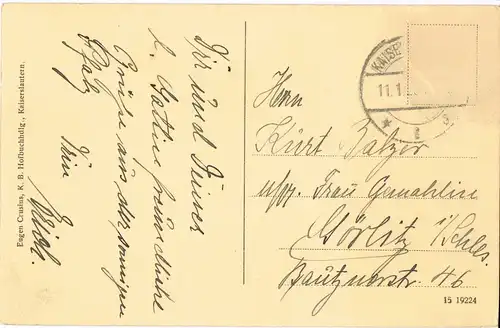 Eugen Crusius, K. B. Hofbuchhdlg., Kaiserslautern.
Dir und Deiner
l. Gattin freundliche
Grüße aus der sonnigen
Pfalz
Dein
KAISE
11.1
* 1 5
Herrn
Kurt Balzer
u/Frau Gemahlin
Görlitz i/Schles.
Bautznerstr 46
15 19224